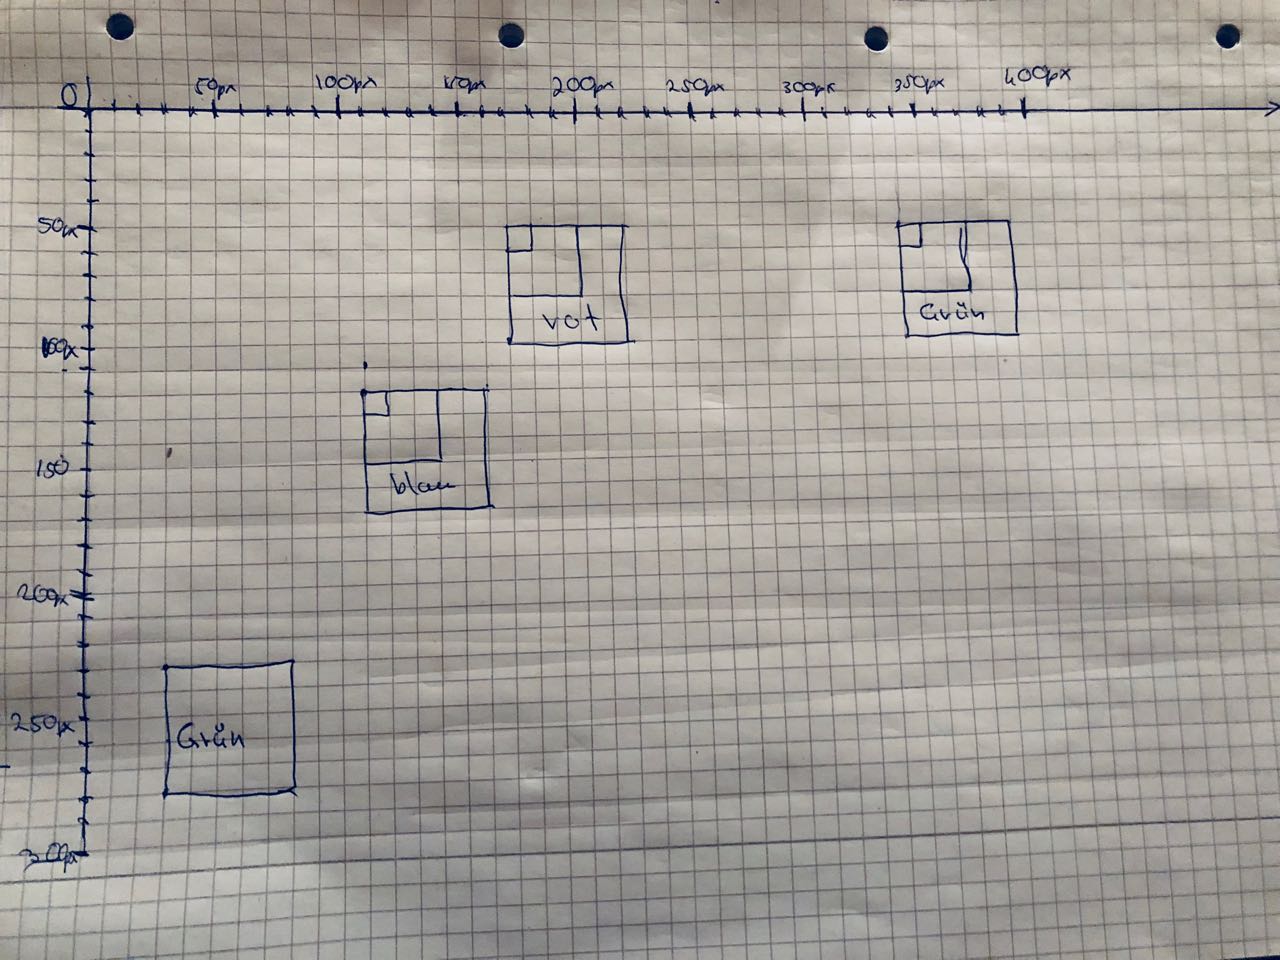 0 50px 100px 150px 200px 250px 300px 350px 400px
50px
100px
150
200px
250px
300px
rot
Grün
blau
Grün